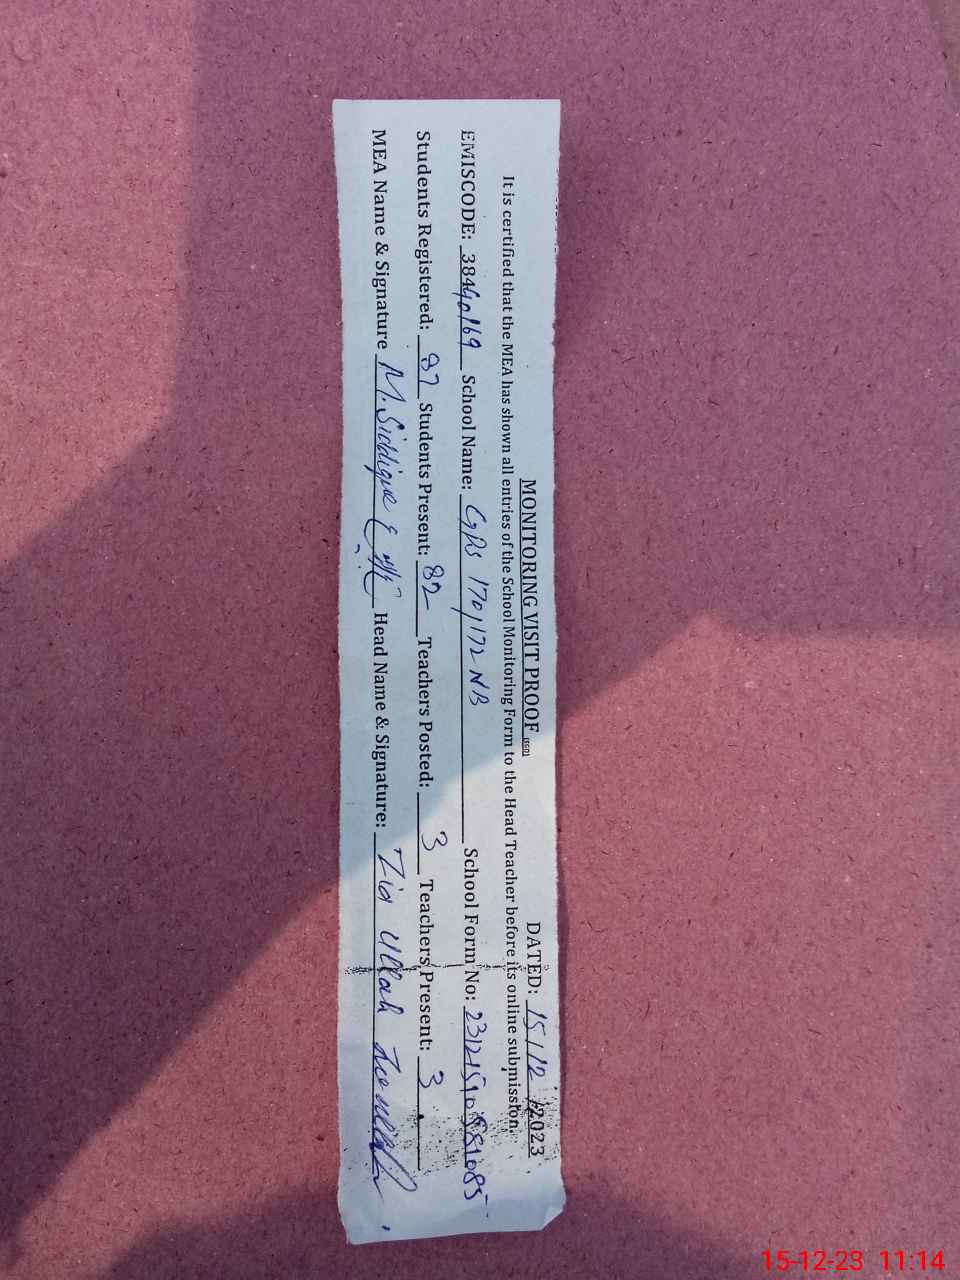 MONITORING VISIT PROOF DATED: 15/12/2023
It is certified that the MEA has shown all entries of the School Monitoring Form to the Head Teacher before its online submission.
EMISCODE: 38440169 School Name: GPS 170/172 NB School Form No:
Students Registered: 87 Students Present: 82 Teachers Posted: 3 Teachers Present: 3
MEA Name & Signature M. Siddique Head Name & Signature: Zia Ullah
15-12-23 11:14